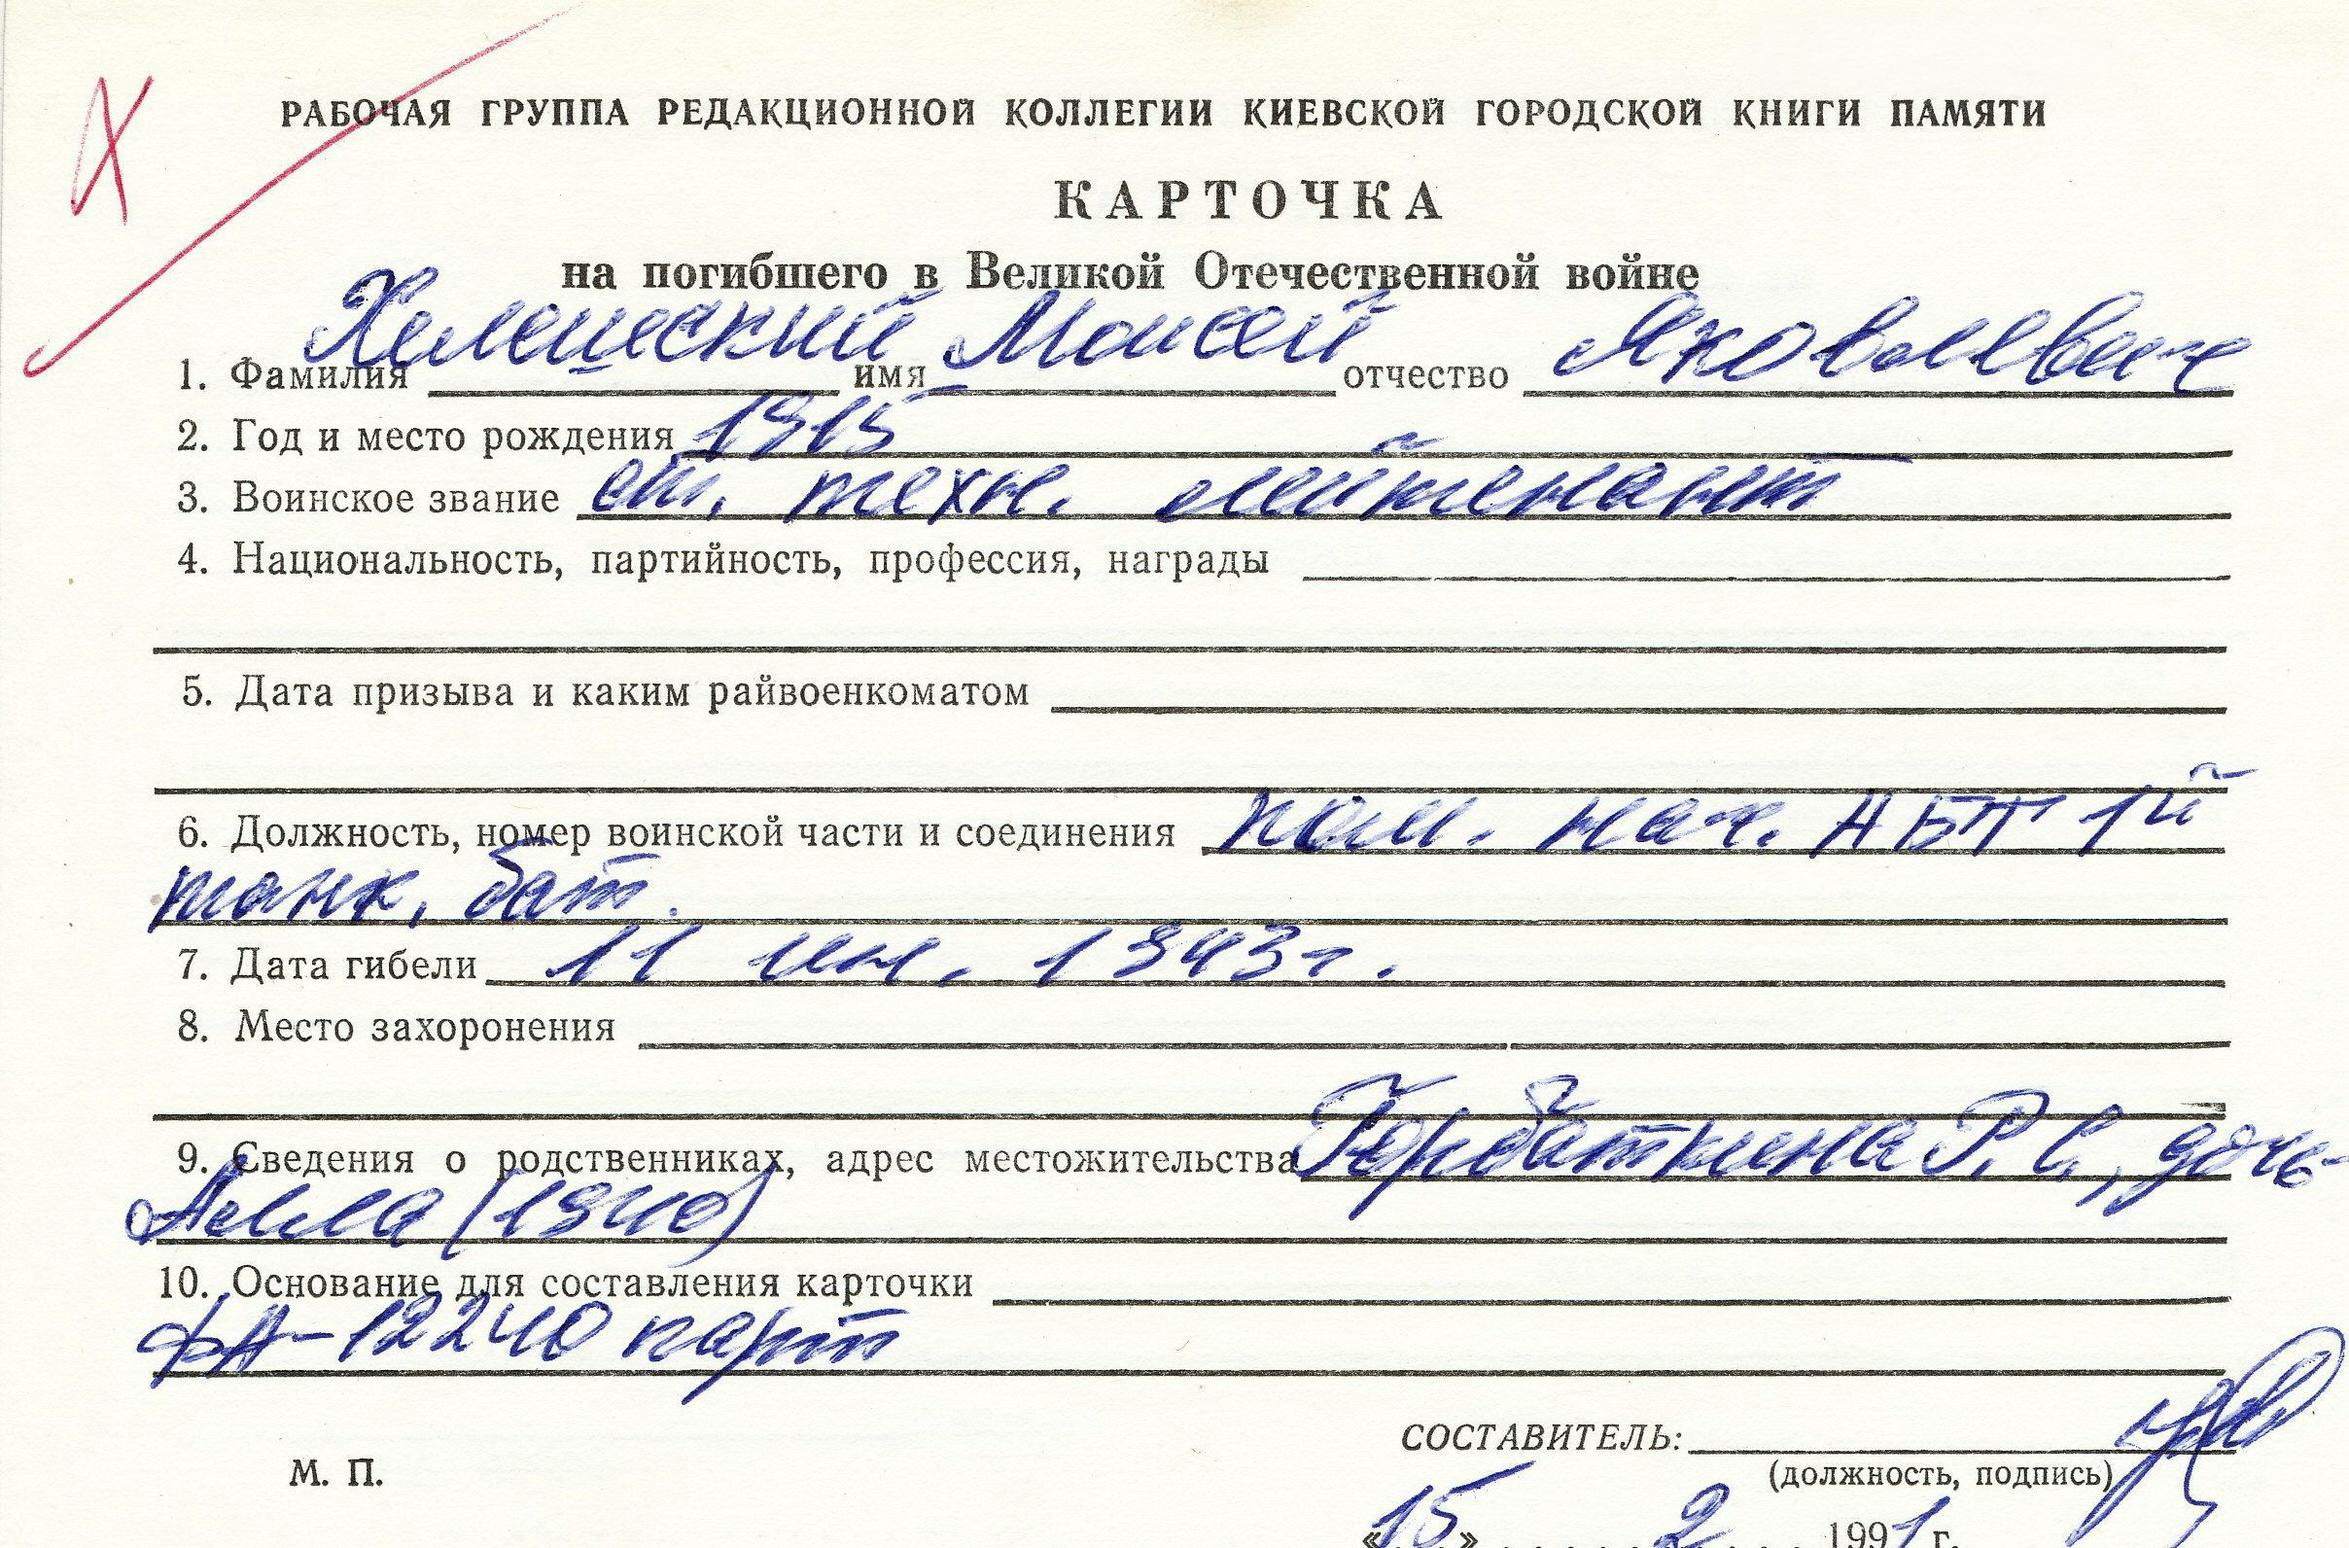 РАБОЧАЯ ГРУППА РЕДАКЦИОННОЙ КОЛЛЕГИИ КИЕВСКОЙ ГОРОДСКОЙ КНИГИ ПАМЯТИ
КАРТОЧКА
на погибшего в Великой Отечественной войне
1. Фамилия имя Моисей отчество Яковлевич
2. Год и место рождения 1915
3. Воинское звание ст. техн. лейтенант
4. Национальность, партийность, профессия, награды
5. Дата призыва и каким райвоенкоматом
6. Должность, номер воинской части и соединения пом. нач. АБТ 1й
танк. бат.
7. Дата гибели 11 1943 г.
8. Место захоронения
9. Сведения о родственниках, адрес местожительства Горбаткина Р. С., дочь
Алла (1940)
10. Основание для составления карточки
фА-12240 карт
СОСТАВИТЕЛЬ:
(должность, подпись)
М. П.
«15» 2 1991 г.